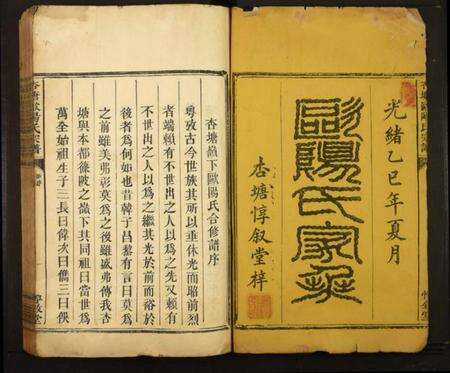 光緒乙巳年夏月
歐陽氏家乘
杏塘惇叙堂梓
杏塘嶺下歐陽氏合修譜序
粵攷古今世族其所以垂休光而昭前烈
者端賴有不世出之人以為之先又賴有
不世出之人以為之繼其光於前而裕於
後者為何如也昔韓子昌黎有言曰莫為
之前雖美弗彰莫為之後雖盛弗傳我杏
塘與本都篠陂之嶺下其同祖曰當世為
萬全始祖生子三長曰偉次曰儁三曰俁